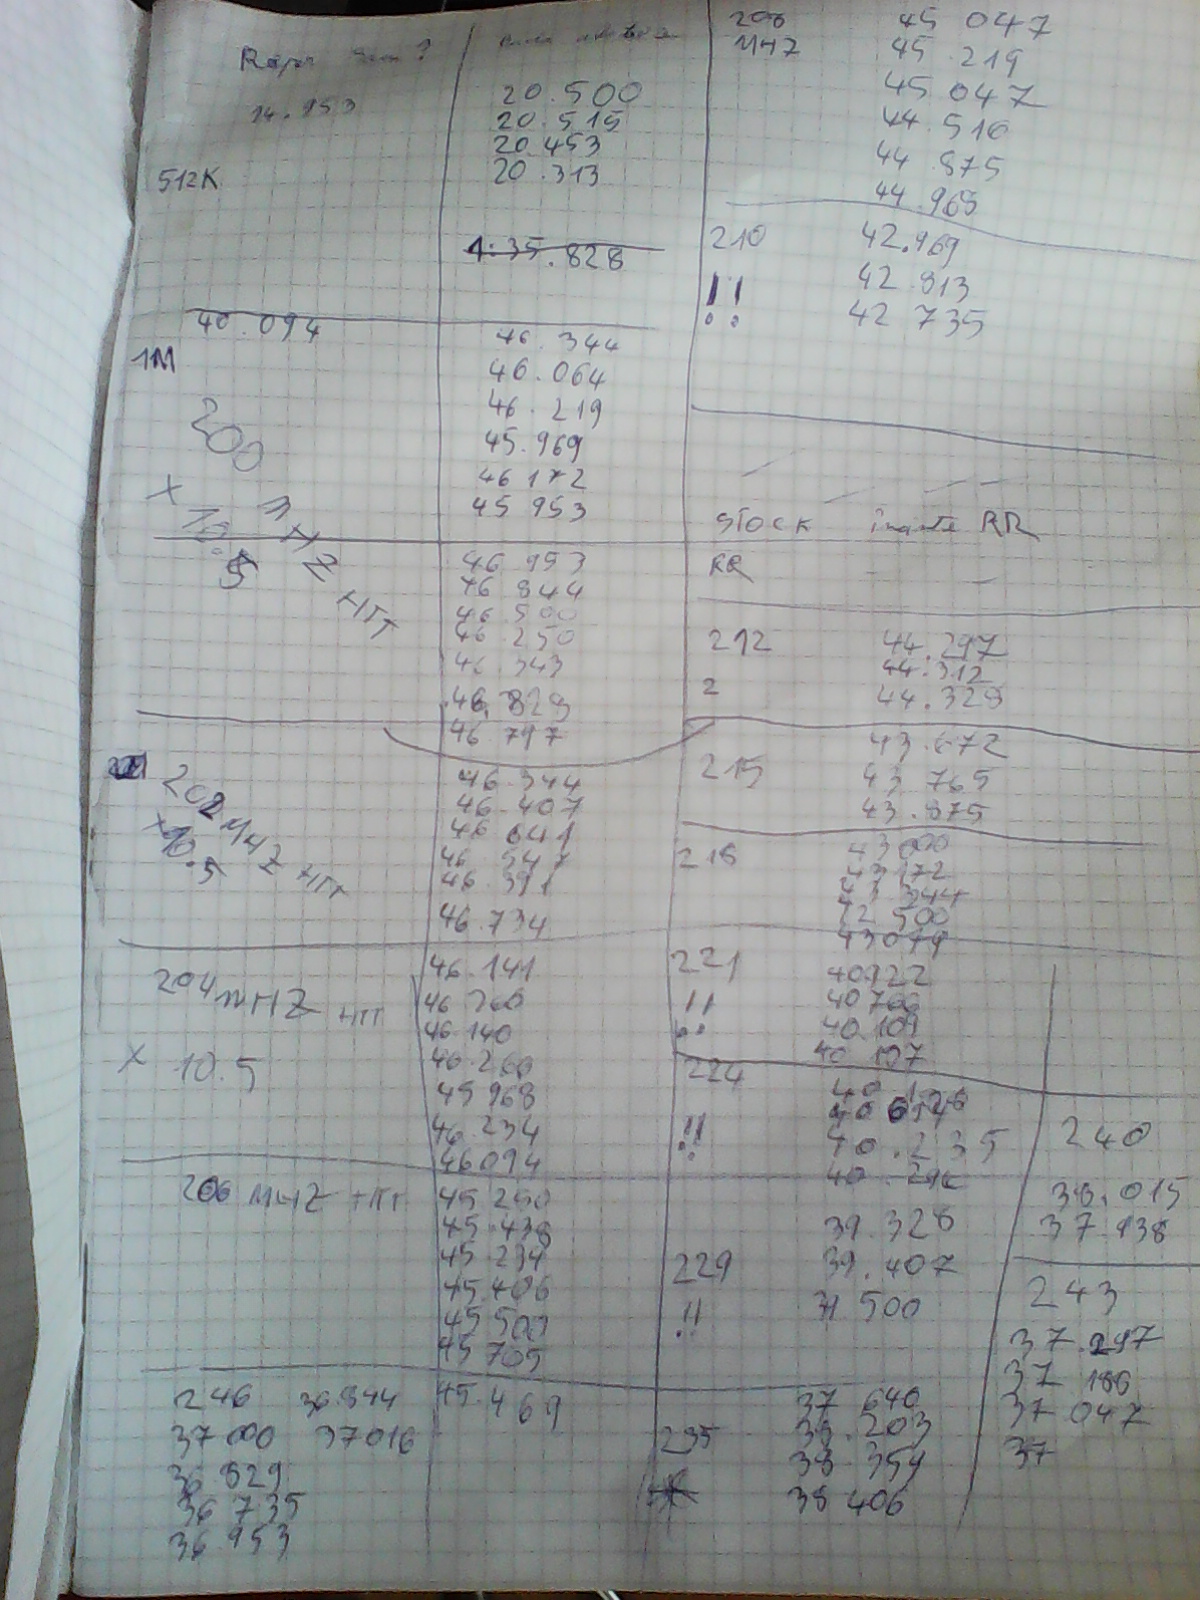 20.500
20.515
20.453
20.313
512K
1:35.828
40.094
1M
46.344
46.064
46.219
45.969
46 172
45 953
200 MHZ HTT
x 10.5
46 953
46 844
46 500
46 250
46.343
46.829
46 797
202 MHZ HTT
x 10.5
46.344
46.407
46 641
46 547
46.391
46.734
204 MHZ HTT
x 10.5
46.141
46.140
46.260
45 968
46.234
46094
206 MHZ HTT
45 250
45.438
45 234
45.406
45 500
45 765
45.469
246 36.844
37 000 37016
36 829
36 735
36 953
MHZ
45 047
45.219
45 047
44.516
44 875
44.969
210
!!
42.969
42.813
42 735
STOCK înainte RR
RR
212
2
44.297
44.312
44.329
215
43.672
43 765
43.875
218
43000
43172
43 344
42 500
43079
221
!!
40922
40766
40.109
224
!!
40.235
229
!!
39.328
39.407
235
37 640
38.203
38 359
38 406
240
38.015
37.938
243
37.297
37 186
37 047
37